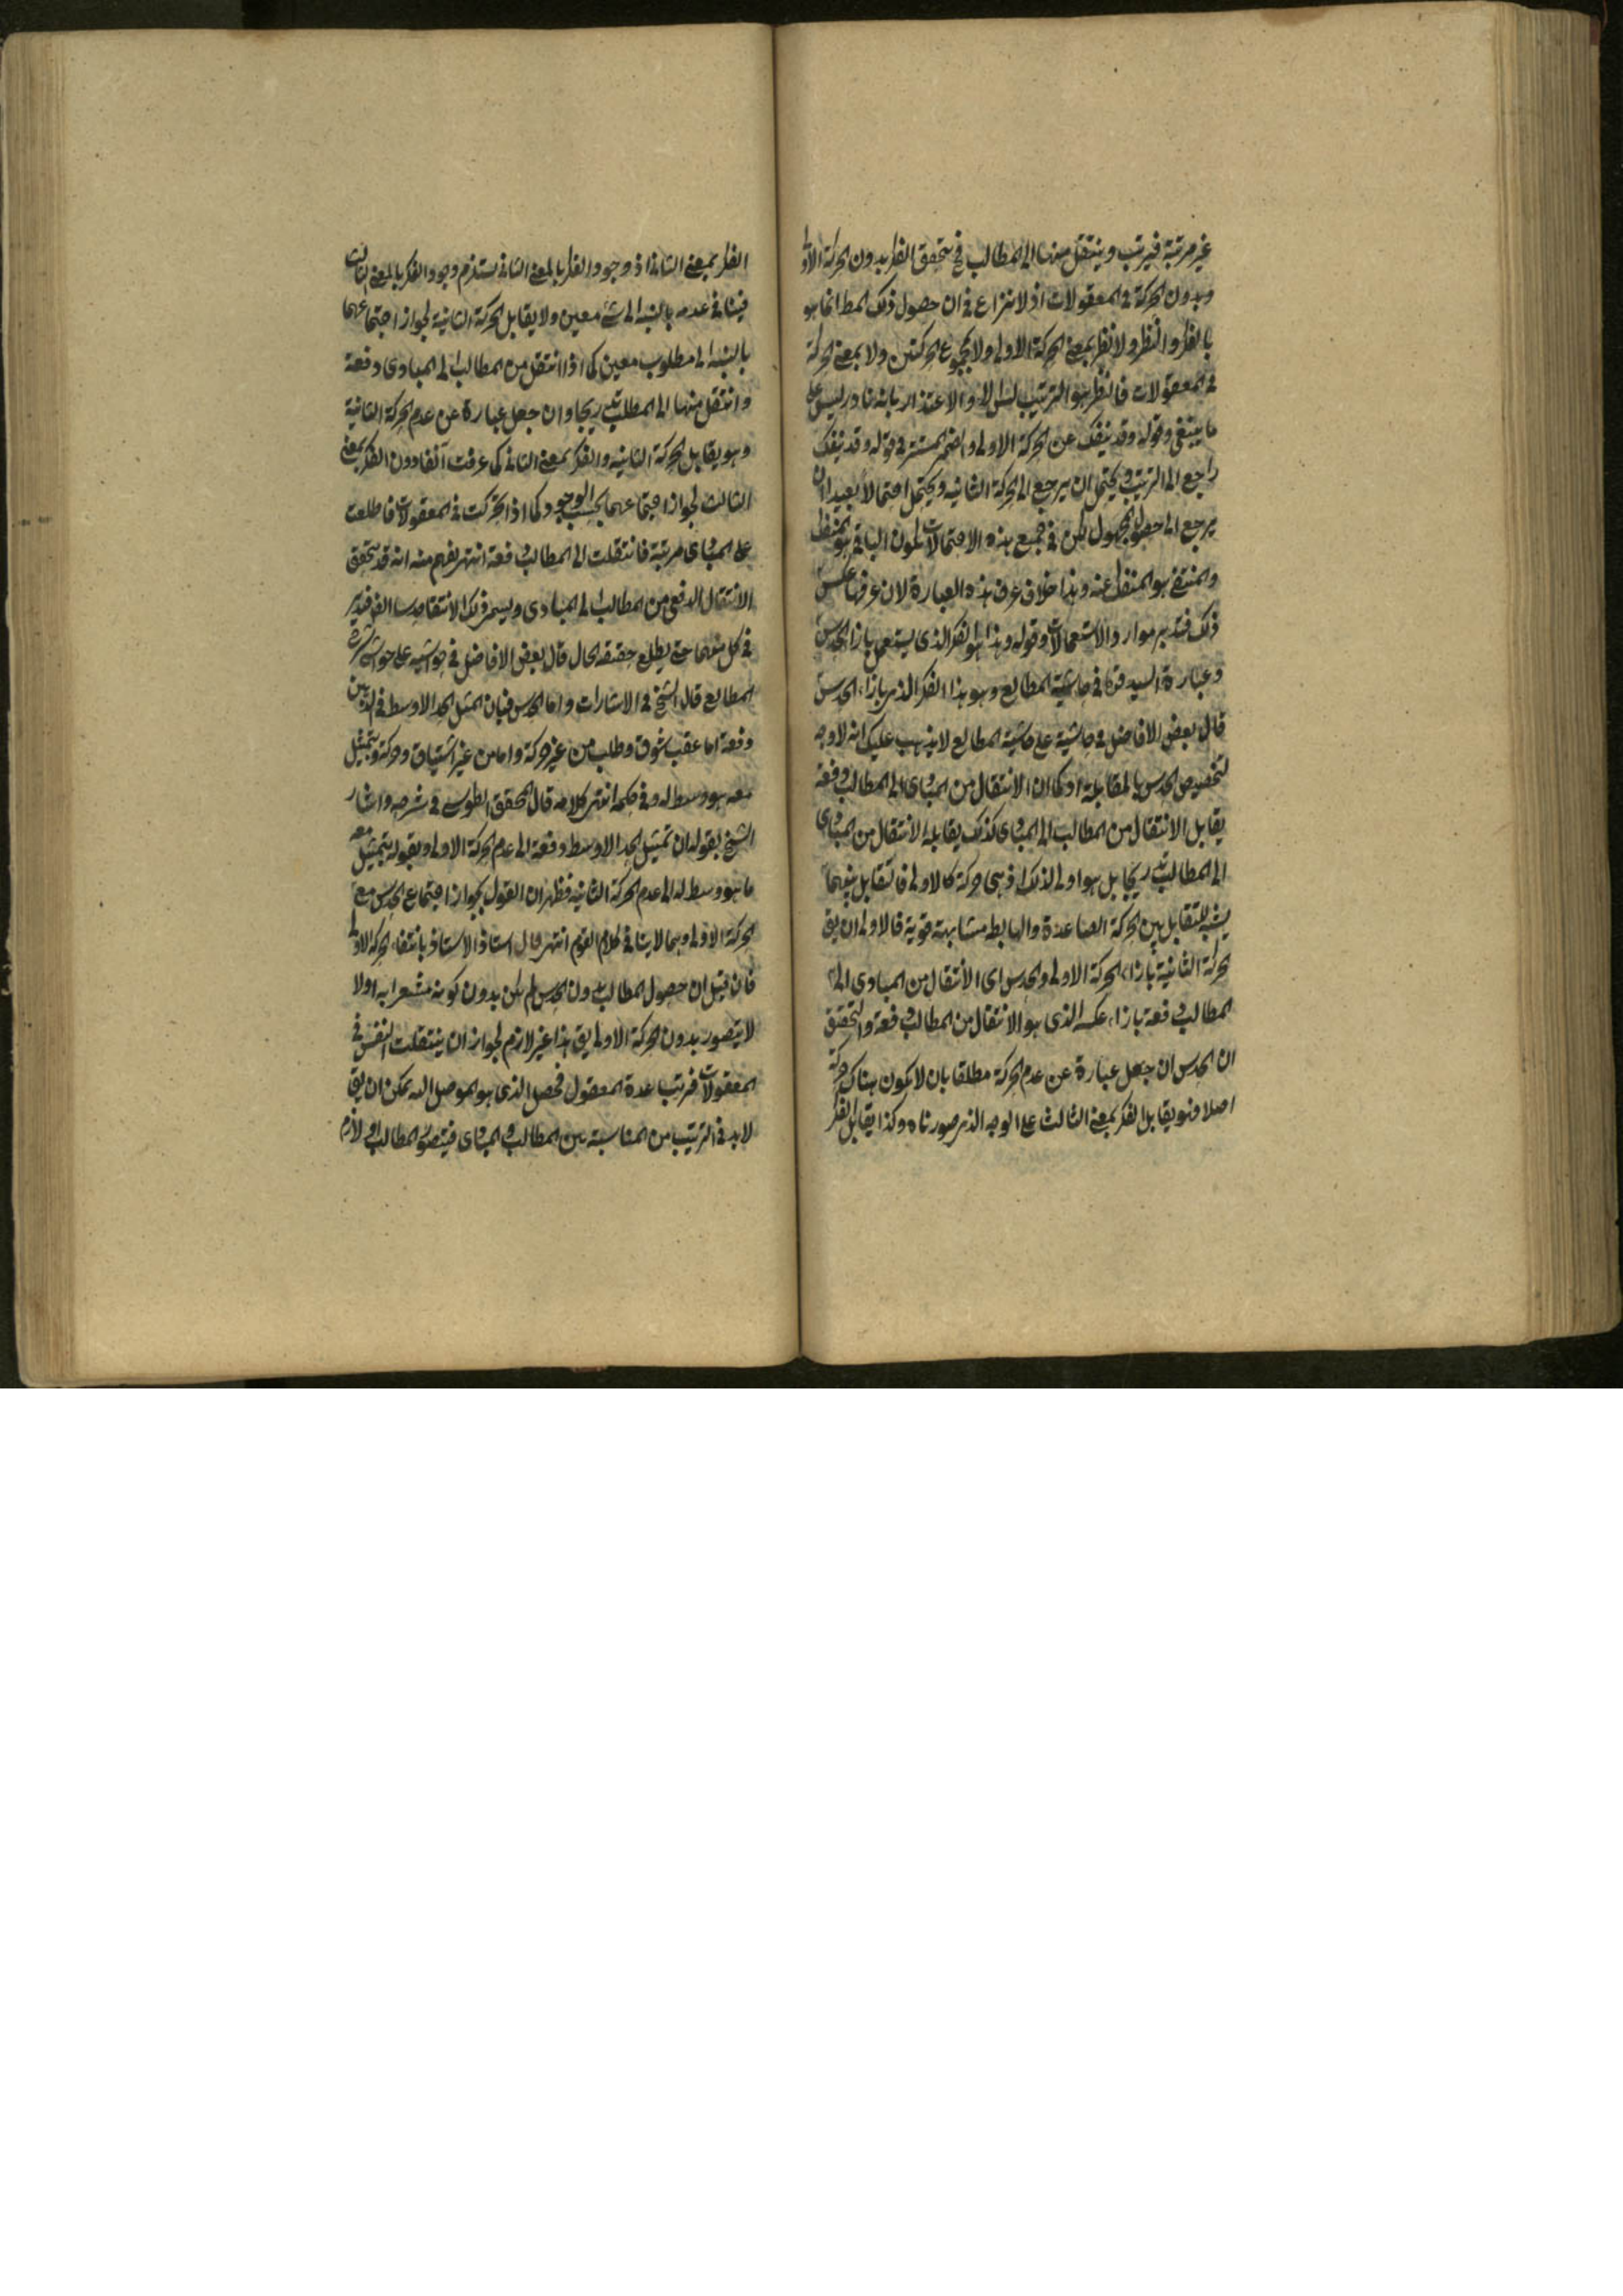 غير مرتبة فيرتب وينتقل منها الى المطالب فح يتحقق الفكر بدون الحركة الاولى
وبدون الحركة فى المعقولات اذ لا نزاع فى ان حصول ذلك المط انما هو
بالفكر والنظر ولا نظر بمعنى الحركة الاولى ولا بمجموع الحركتين ولا بمعنى الحركة
فى المعقولات فالنظر هو الترتيب والاعتذار بانه نادر ليس على
ما ينبغى وقوله وقد ينفك عن الحركة الاولى والضمير المستتر فى قوله وقد ينفك
راجع الى الترتيب ويحتمل ان يرجع الى الحركة الثانيه ويحتمل احتمالا بعيدا ان
يرجع الى حصول المجهول لكن فى جميع هذه الاحتمالات يكون الباقى هو المنفك
والمنتفى هو المنفك عنه وهذا خلاف عرف هذه العبارة لان عرفها عكس
ذلك فتدبر موارد الاستعمالات وقوله وهذا هو الفكر الذى يستعمل بازاء الحدس
وعبارة السيد قده فى حاشية المطالع وهو هذا الفكر الذى بازاء الحدس
قال بعض الافاضل فى حاشيته على حاشية المطالع لا يذهب عليك انه لا وجه
لتخصيص الحدس بالمقابلة اذ كما ان الانتقال من المبادى الى المطالب دفعة
يقابل الانتقال من المطالب الى المبادى كذلك يقابله الانتقال من المبادى
الى المطالب تدريجا بل هو اولى لذلك اذ هى حركة كالاولى فالتقابل بينهما
يشبه التقابل بين الحركة الصاعدة والهابطة مشابهة قوية فالاولى ان يق
الحركة الثانية بازاء الحركة الاولى والحدس اى الانتقال من المبادى الى
المطالب دفعة بازاء عكسه الذى هو الانتقال من المطالب دفعة والتحقيق
ان الحدس ان جعل عبارة عن عدم الحركة مطلقا بان لا يكون هناك حركة
اصلا فهو يقابل الفكر بمعنى الثالث على الوجه الذى صورناه وكذا يقابل الفكر
الفكر بمعنى الثانى اذ وجود الفكر بالمعنى الثانى يستلزم وجود الفكر بالمعنى الثالث
فينافى عدمه بالنسبة الى شئ معين ولا يقابل الحركة الثانية لجواز اجتماعهما
بالنسبة الى مطلوب معين كما اذا انتقل من المطالب الى المبادى دفعة
وانتقل منها الى المطلب تدريجا وان جعل عبارة عن عدم الحركة الثانية
وهو يقابل الحركة الثانيه والفكر بمعنى الثانى كما عرفت آنفا دون الفكر بمعنى
الثالث لجواز اجتماعهما بحسب الوجود كما اذا تحركت فى المعقولات فاطلعت
على المبادى مرتبة فانتقلت الى المطالب دفعة انتهى يفهم منه انه قد يتحقق
الانتقال الدفعى من المطالب الى المبادى ويسمى ذلك الانتقال حدسا
فى كل منهما حتى يطلع حقيقة الحال قال بعض الافاضل فى حواشيه على حواشى شرح
المطالع قال الشيخ فى الاشارات واما الحدس فبان يتمثل الحد الاوسط فى الذهن
دفعة اما عقيب شوق وطلب من غير حركة واما من غير اشتياق وحركة ويتمثل
معه ما هو وسط له وفى حكمه انتهى كلامه قال المحقق الطوسى فى شرحه واشار
الشيخ بقوله ان تمثيل الحد الاوسط دفعة الى عدم الحركة الاولى وبقوله يتمثل معه
ما هو وسط له الى عدم الحركة الثانيه فظهر ان القول بجواز اجتماع الحدس مع
الحركة الاولى وهما لا ينافى كلام القوم انتهى قال استاذ الاستاذ بانتفاء الحركة الاولى
فان قيل ان حصول المطالب بدون الحدس لم يكن بدون كونه مشعرا به اولا
لا يتصور بدون الحركة الاولى يق هذا غير لازم لجواز ان ينتقلت النفس فى
المعقولات فرتب عدة المعقول فحصل الذى هو الموصل اليه يمكن ان يق
لا بد فى الترتيب من المناسبة بين المطالب والمبادى فيتصور المطالب اولا لازم